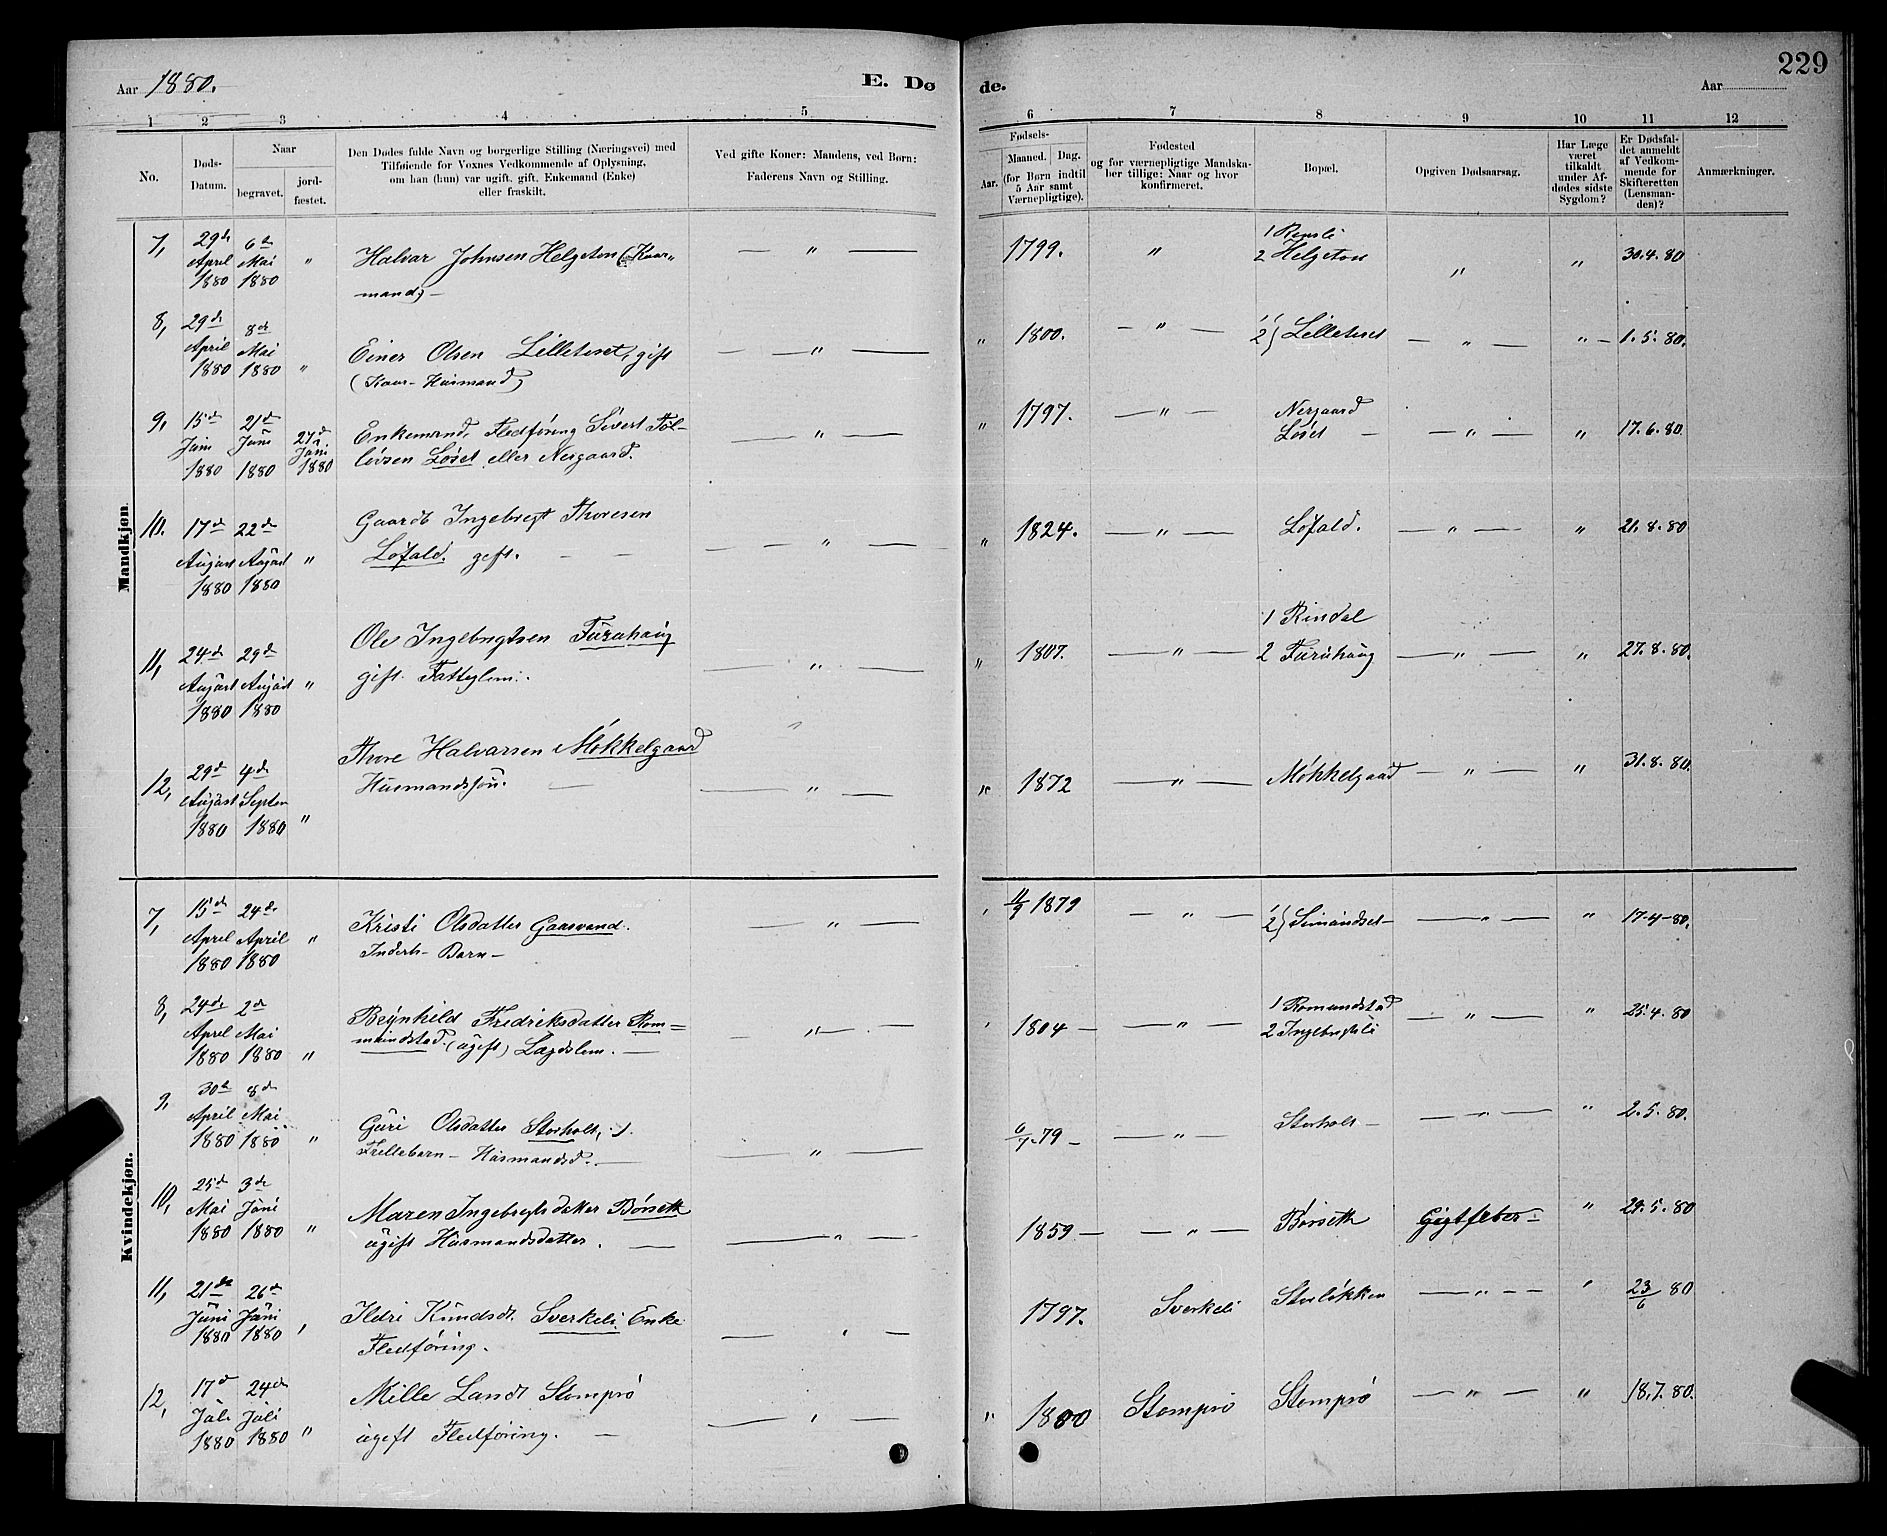 Aar 1880.
E. Dø
de.
Aar
229
1 2 3 4 5 6 7 8 9 10 11 12
No.
Døds-Datum.
Naar
begravet.
jord-fæstet.
Den Dødes fulde Navn og borgerlige Stilling (Næringsvei) med
Tilføiende for Voxnes Vedkommende af Oplysning,
om han (hun) var ugift, gift, Enkemand (Enke)
eller fraskilt.
Ved gifte Koner: Mandens, ved Børn:
Faderens Navn og Stilling.
Fødsels-
Aar.
Maaned. Dag.
(for Børn indtil
5 Aar samt
Værnepligtige).
Fødested
og for værnepligtige Mandska-
ber tillige: Naar og hvor
konfirmeret.
Bopæl.
Opgiven Dødsaarsag.
Har Læge
været
tilkaldt
under Af-
dødes sidste
Sygdom?
Er Dødsfal-
det anmeldt
af Vedkom-
mende for
Skifteretten
(Lensman-
den)?
Anmærkninger.
Mandkjøn.
7, 29de April 1880 6te Mai 1880 " Halvar Johnsen Helgeton (Kaar-
mand) — " — 1799. " 1 Rensli
2 Helgeton " " 30.4.80
8, 29de April 1880 8de Mai 1880 " Einer Olsen Lilleteset, gift
(Kaar-Husmand) — " — " 1800. — " — 1/2} Lilleteset — " — " — 1.5.80.
9, 15de Juni 1880 21de Juni 1880 27de Juni 1880 Enkemand, Fledføring Sivert Tol-
levsen Løset eller Nergaard. — " — " 1797. — " — Nergaard
Løset — — " — " 17.6.80
10. 17de August 1880 22de August 1880 " Gaardb Ingebrigt Thoresen
Løfald. gift. — — — " — " 1824. — " — Løfald. — " — " 21.8.80
11, 24de August 1880 29de August 1880 " Ole Ingebrigtsen Furuhaug
gift. Fattiglem. — " — " 1807. — " — 1 Rindal
2 Furuhaug — " — " 27.8.80.
12, 29de August 1880 4de Septem 1880 " Thore Halvarsen Møkkelgaard
Husmandssøn. — " — " 1872 — " — Møkkelgaard — " — " 31.8.80.
Kvindekjøn.
7, 15de April 1880 24de April 1880 " Kristi Olsdatter Gaasvand.
Inderts- Barn — — " — 11/9 1879 — " — 1/2} Simundset — — " — " 17-4-80.
8, 24de April 1880 2de Mai 1880 " Brynhild Fredriksdatter Rom=
mundstad. (ugift) Lægdslem. — — " — 1804 — — " — 1 Romundstad
2 Ingebrigtsli — " — " 25.4.80
9, 30te April 1880 8de Mai 1880 " Guri Olsdatter Storholt,
Frillebarn - Husmandsd. — — " — 6/7 79 — — " — Storholt — — " — " 2.5.80.
10, 25de Mai 1880 3de Juni 1880 " Maren Ingebrigtsdatter Børseth
ugift Husmandsdatter. — — " — 1859 — — " — Børseth Gigtfeber — " 29.5.80
11, 21de Juni 1880 26de Juni 1880 Ildri Knudsdt. Sverkeli Enke
Fledføring. — " — 1797. Sverkeli Storløkken — " — " 23/6 80
12, 17de Juli 1880 24de Juli 1880 " Mille Landt Stomprø
ugift Fledføring. — — " — " 1800 Stomprø Stomprø — " — " 18.7.80.